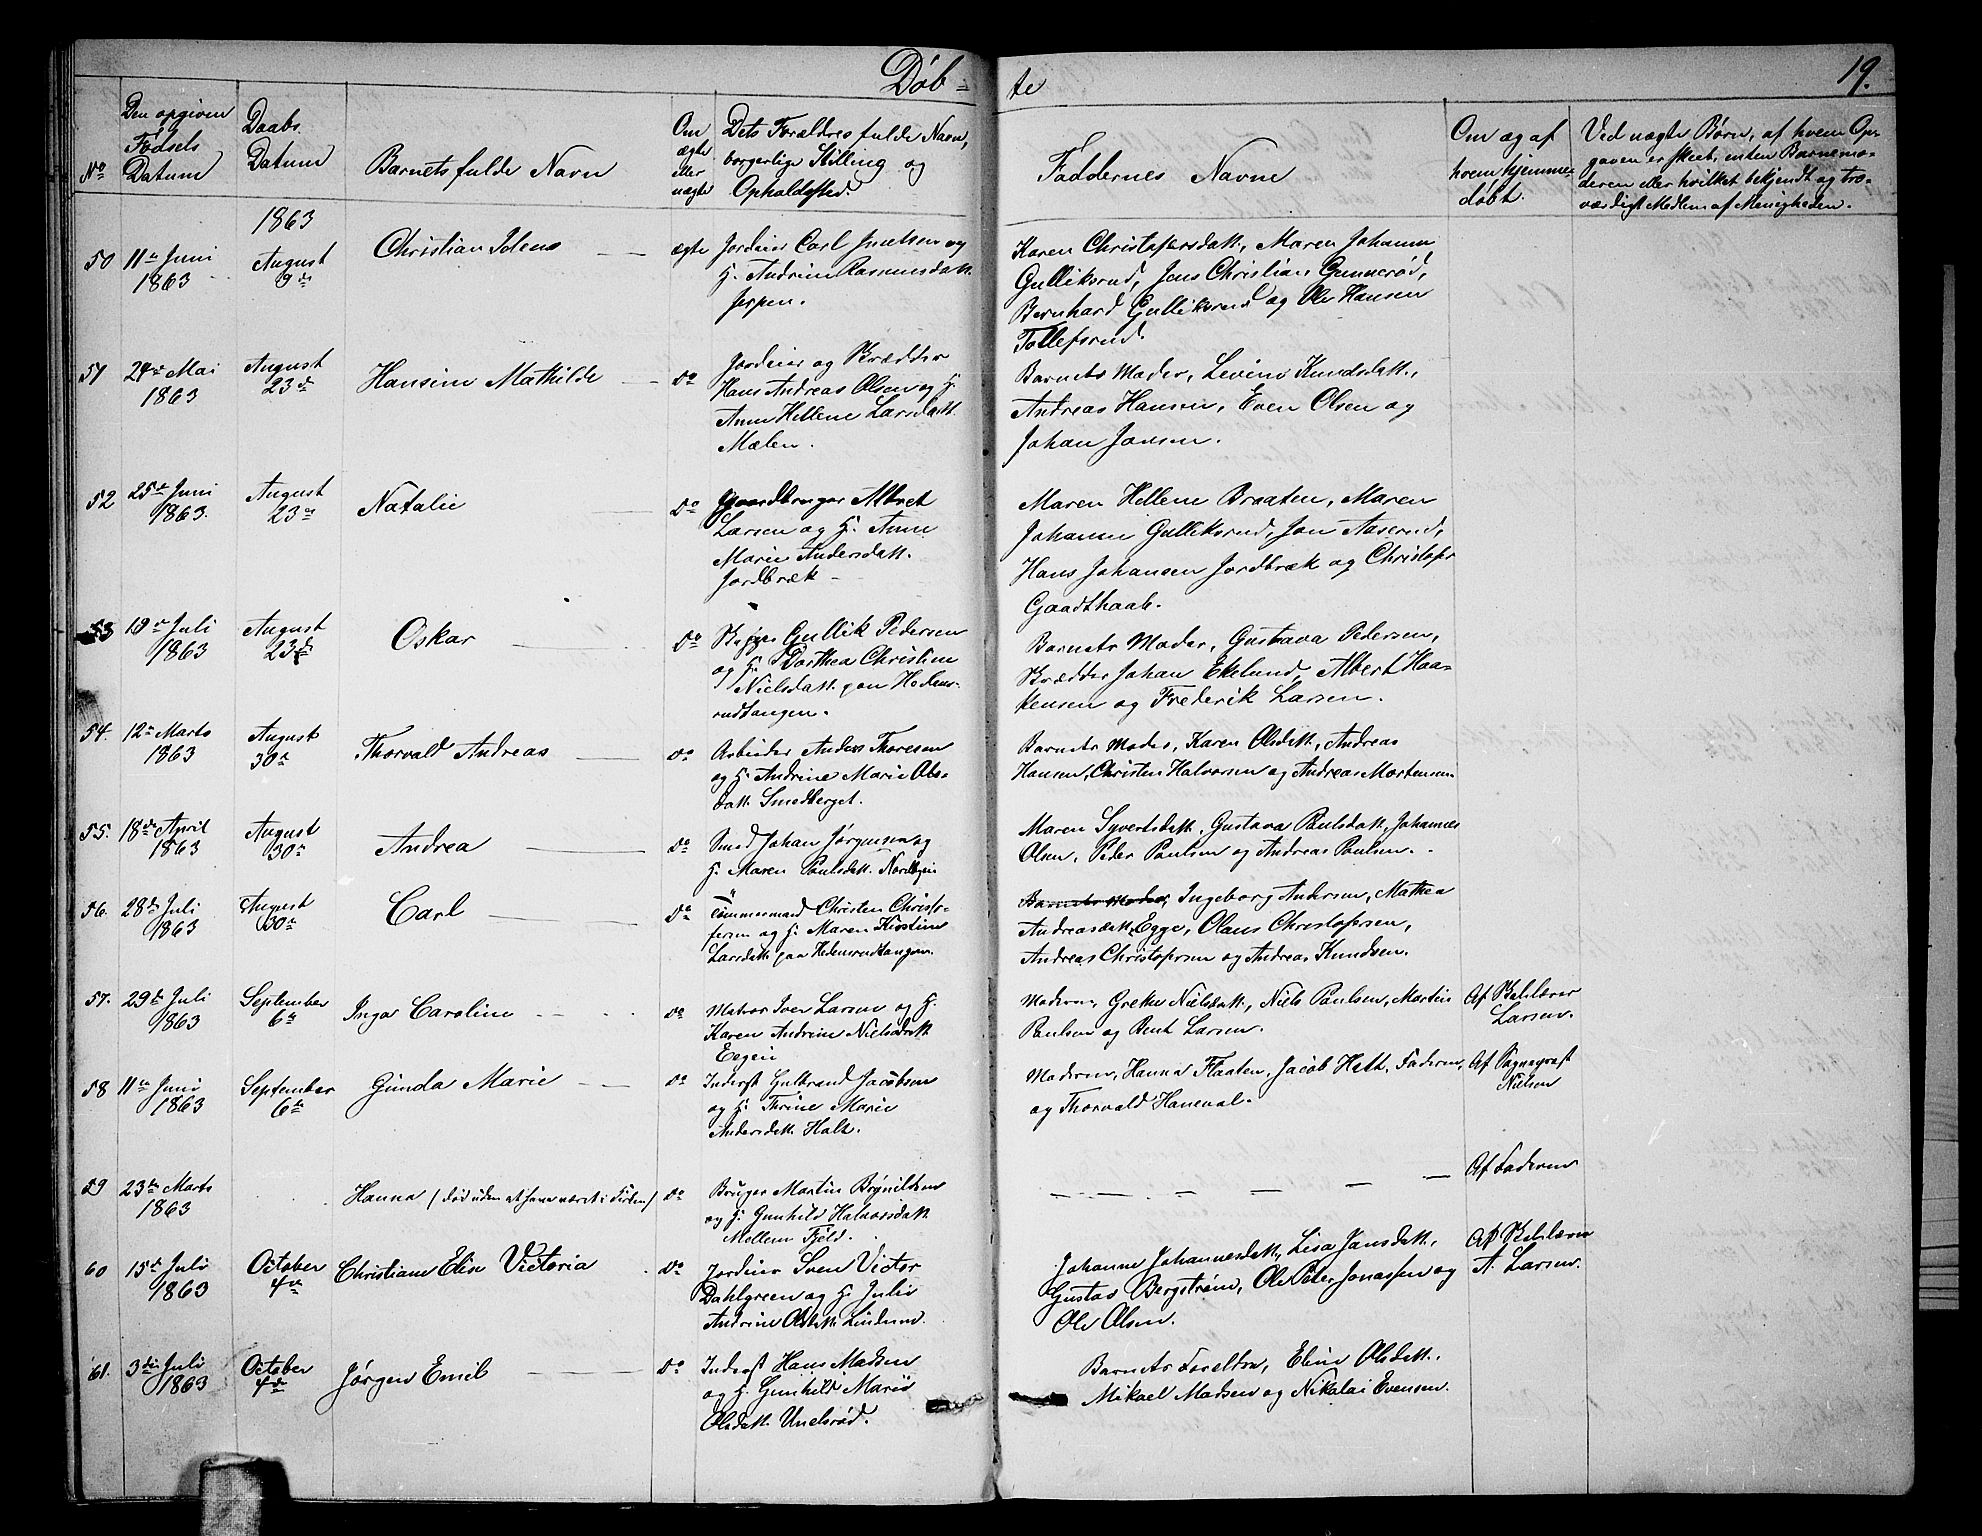 Døb-
te
19.
No
Den opgivne Fødsels Datum
Daabs Datum
Barnets fulde Navn
Om ægte eller uægte
Dets Forældres fulde Navn, borgerlige Stilling og Opholdssted.
Faddernes Navne
Om og af hvem hjemmedøbt.
Ved uægte Børn, af hvem Opgaven er skeet, enten Barnemoderen eller hvilket bekjendt og troværdigt Medlem af Menigheden.
1863
50 11te Juni 1863
August 9de
Christian
ægte
Jordeier Carl
og
H. Andrine Rasmusdatt.
Jerpen.
Karen Christofersdatt., Maren Johanne
Gulliksrud, Jens Christian Gunnerød,
Bernhard Gulliksrud og Ole Hansen
Tollefsrud.
51 Mai 1863
August 23de
Hansine Mathilde
Do
Jordeier og Skrædder
Hans Andreas Olsen og H.
Anne Hellene Larsdatt.
Mælen.
Barnets Moder, Levine Knudsdatt.,
Andreas Hansen, Even Olsen og
Johan Jansen.
52 25de Juni 1863.
August 23de
Natalie
Do
Gaardbruger Albret
Larsen og H. Anne
Marie Andersdatt.
Jordbræk
Maren Hellene Braaten, Maren
Johanne Gulliksrud, Jon Aaserud,
Hans Johansen Jordbræk og Christofer
Gaadthaab.
53 Juli 1863
August 23de
Oskar
Do
Gullik Pedersen
og H. Dorthea Christine
Nielsdatt. paa Hedens-
rudtangen.
Barnets Moder, Gustava Pedersen,
Skrædder Johan Ekelund, Albert Haa-
kensen og Frederik Larsen.
54. 12te Marts 1863
August 30te
Thorvald Andreas
Do
Arbeider Anders Thoresen
og H. Andrine Marie Ols-
datt. Smedberget.
Barnets Moder, Karen Olsdatt., Andreas
Hansen, Christen Halvorsen og Andreas Mortensen
55. 18de April 1863
August 30te
Andrea
Do
Smed Johan Jørgensen og
H. Maren Paulsdatt.
Maren Syvertsdatt., Gustava Paulsdatt., Johannes
Olsen, Peder Paulsen og Andreas Paulsen.
56. 28de Juli 1863
August 30te
Carl
Do
Tømmermand Christen Christo-
fersen og H. Maren Kirstine
Larsdatt. paa Hedensrudtangen.
Barnets Moder, Ingeborg Andersen, Mathea
Andreasdatt. Egge, Olaus Christofersen,
Andreas Christofersen og Andreas Knudsen.
57. 29de Juli 1863
September 6te
Inga Caroline
Do
Matros Iver Larsen og H.
Karen Andrine Nielsdatt.
Moderen, Grethe Nielsdatt., Niels Paulsen, Martin
Paulsen og Bent Larsen.
Af Skolelærer
Larsen.
58 11te Juni 1863
September 6te
Gunda Marie
Do
Inderst Gulbrand Jacobsen
og H. Thrine Marie
Andersdatt. Holt.
Moderen, Hanna Flaaten, Jacob Holt, Faderen,
og Thorvald Haneval.
Af Sognepræst
Nielsen
59 23de Marts 1863
Hanna (død uden at have været i Kirken)
Do
Bruger Martin Brynildsen
og H. Gunhild Halvorsdatt.
Mellem Fjeld.
Af Faderen
60 15de Juli 1863
October 4de
Christiane Elise Victoria
Do
Jordeier Sven Victor
Dahlgreen og H. Julie
Andrine Olsdatt. Linderen.
Johanne Johannesdatt., Lisa Jansdatt.,
Gustav Bergstrøm, Ole Peter Jonassen og
Ole Olsen.
Af Skolelærer
A. Larsen.
61. 3die Juli 1863
October 4de
Jørgen Emil
Do
Inderst Hans Madsen
og H. Gunhild Marie
Olsdatt. Unelsrød.
Barnets Foreldre, Eline Olsdatt.,
Mikael Madsen og Nikolai Evensen.